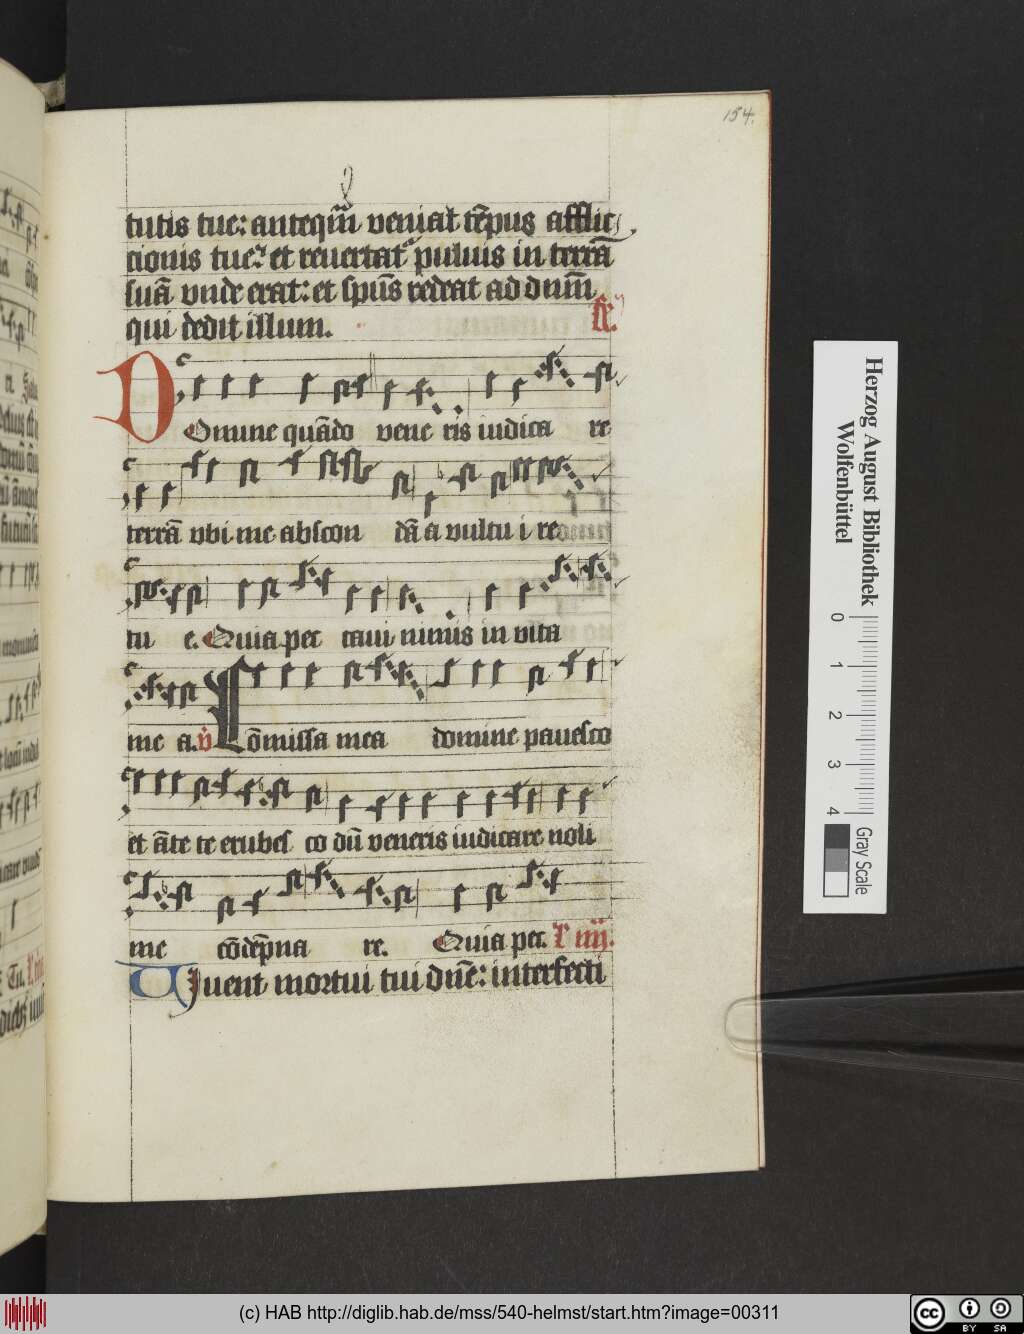 154.
tutis tue: anteqm̄ veniat tēpus afflic
cionis tue: et reuertat᷑ puluis in terrā
suā vnde erat: et spūs redeat ad dnm̄
qui dedit illum. R.
Domine quādo vene ris iudica re
terrā vbi me abscon dā a vultu i re
tu e. Quia pec caui nimis in vita
me a. v̄ Cōmissa mea domine pauesco
et āte te erubes co dū veneris iudicare noli
me cōdēpna re. Quia pec. L iiij.
Uiuent mortui tui dn̄e: interfecti
Herzog August Bibliothek
Wolfenbüttel
0 1 2 3 4
Gray Scale
(c) HAB http://diglib.hab.de/mss/540-helmst/start.htm?image=00311
cc BY SA